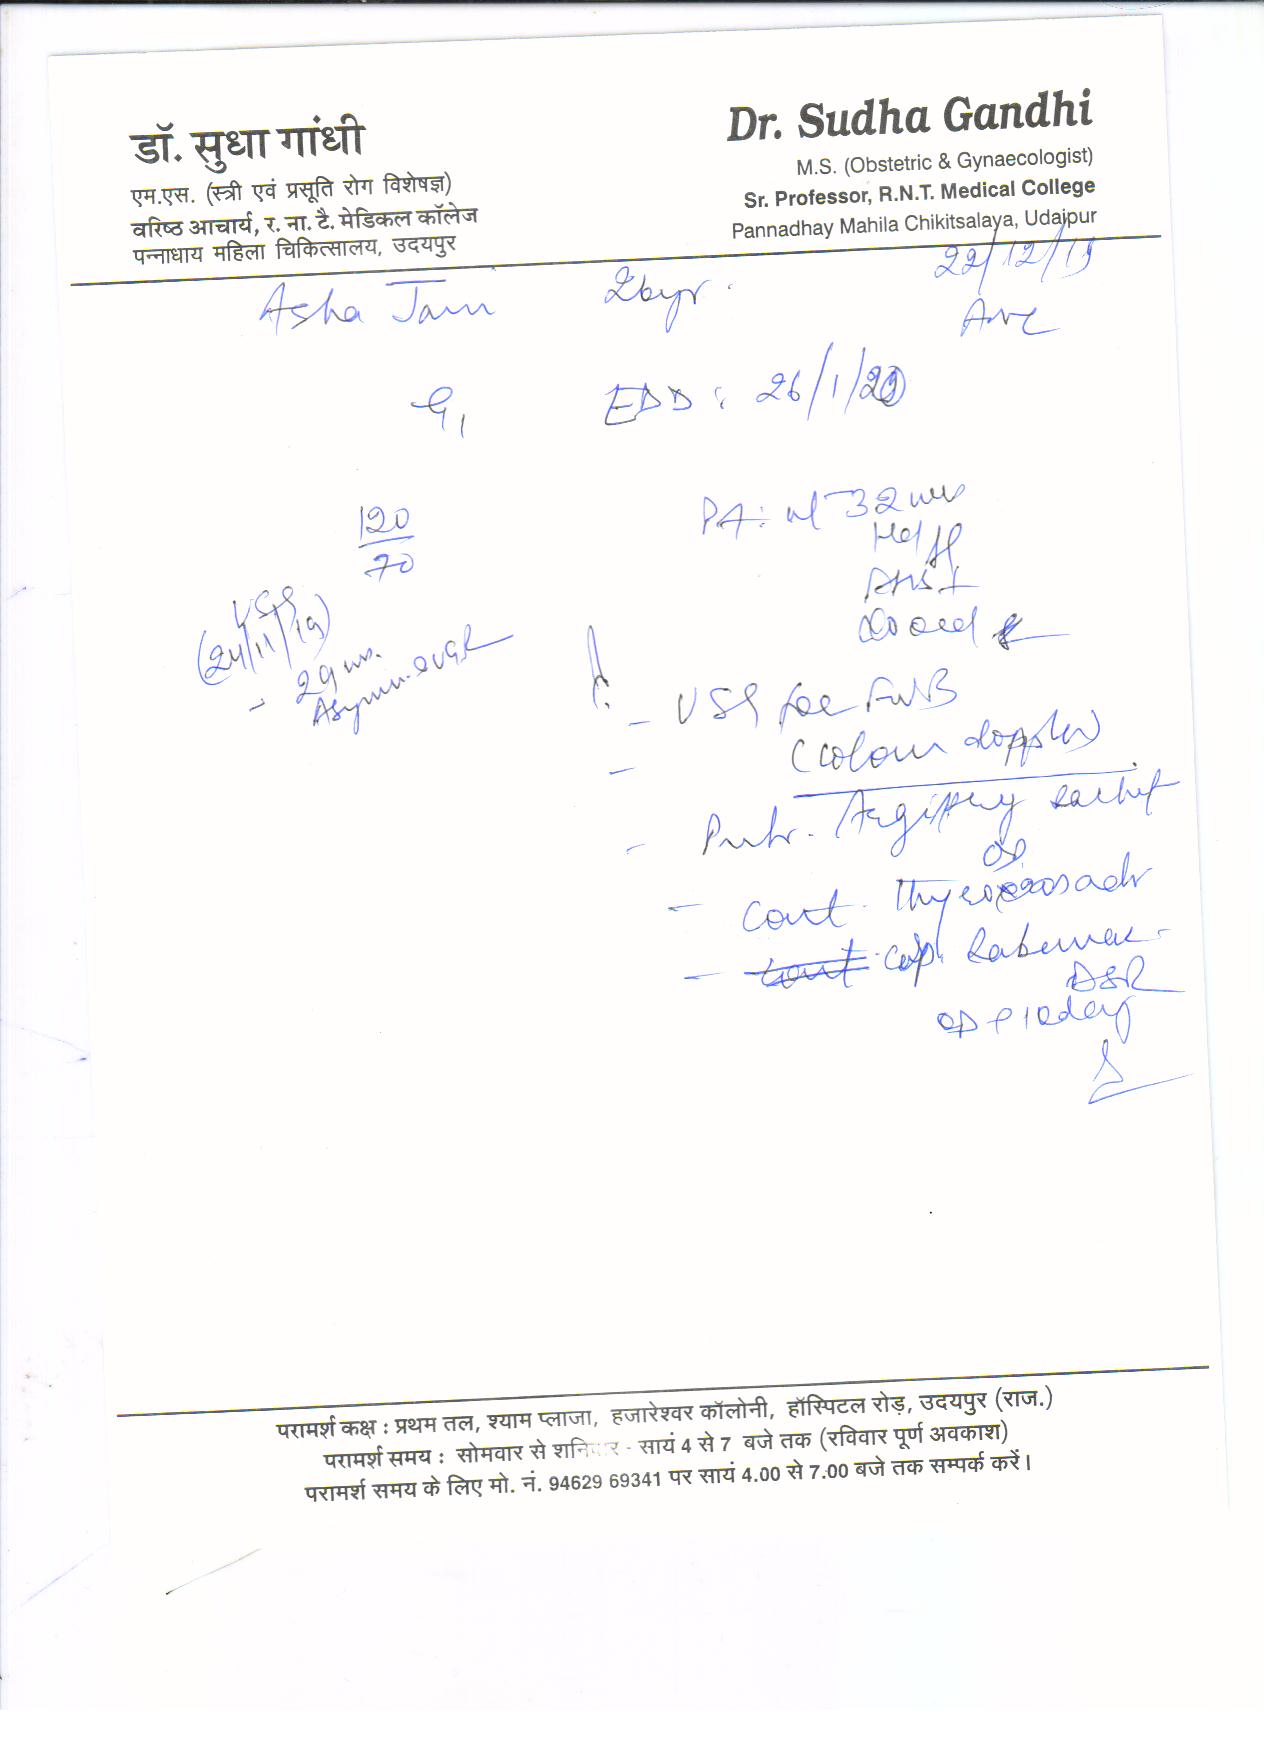 डॉ. सुधा गांधी
एम.एस. (स्त्री एवं प्रसूति रोग विशेषज्ञ)
वरिष्ठ आचार्य, र. ना. टै. मेडिकल कॉलेज
पन्नाधाय महिला चिकित्सालय, उदयपुर
Dr. Sudha Gandhi
M.S. (Obstetric & Gynaecologist)
Sr. Professor, R.N.T. Medical College
Pannadhay Mahila Chikitsalaya, Udaipur
22/12/19
Asha Jain 26yr.
G1 EDD: 26/1/20
120
70
PA: 32
USG
(24/11/19)
- 29
Asymm. IUGR
- USG for FWB
(colour doppler)
- sachet
OD
- Cont.
- cont cap.
DSR
OD 10day
परामर्श कक्ष : प्रथम तल, श्याम प्लाजा, हजारेश्वर कॉलोनी, हॉस्पिटल रोड़, उदयपुर (राज.)
परामर्श समय : सोमवार से शनिवार - सायं 4 से 7 बजे तक (रविवार पूर्ण अवकाश)
परामर्श समय के लिए मो. नं. 94629 69341 पर सायं 4.00 से 7.00 बजे तक सम्पर्क करें।